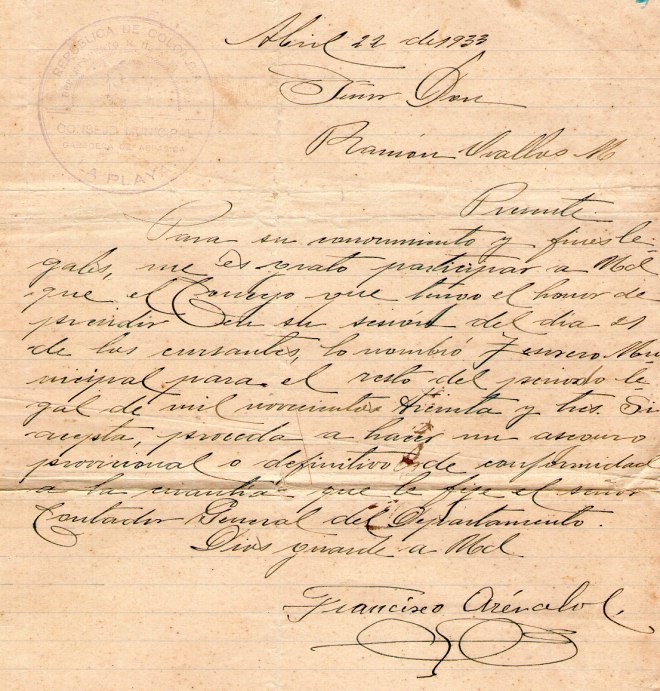 REPUBLICA DE COLOMBIA
CONSEJO MUNICIPAL
LA PLAYA
Abril 22 de 1933
Señor Don
Ramón Ovallos M
Presente.
Para su conocimiento y fines le-
gales, me es grato participar a Ud
que el Concejo que tengo el honor de
presidir en su sesión del dia
de los cursantes, lo nombró Tesorero Mu
nicipal para el resto del periodo le
gal de mil novecientos treinta y tres. Si
acepta, proceda a hacer un aseguro
provicional o definitivo de conformidad
a la cuantia que le fije el señor
Contador General del Departamento.
Dios guarde a Ud
Francisco Arévalo C